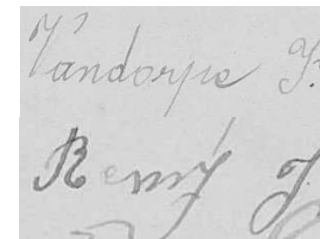 Vandorpe J.
Remy J.